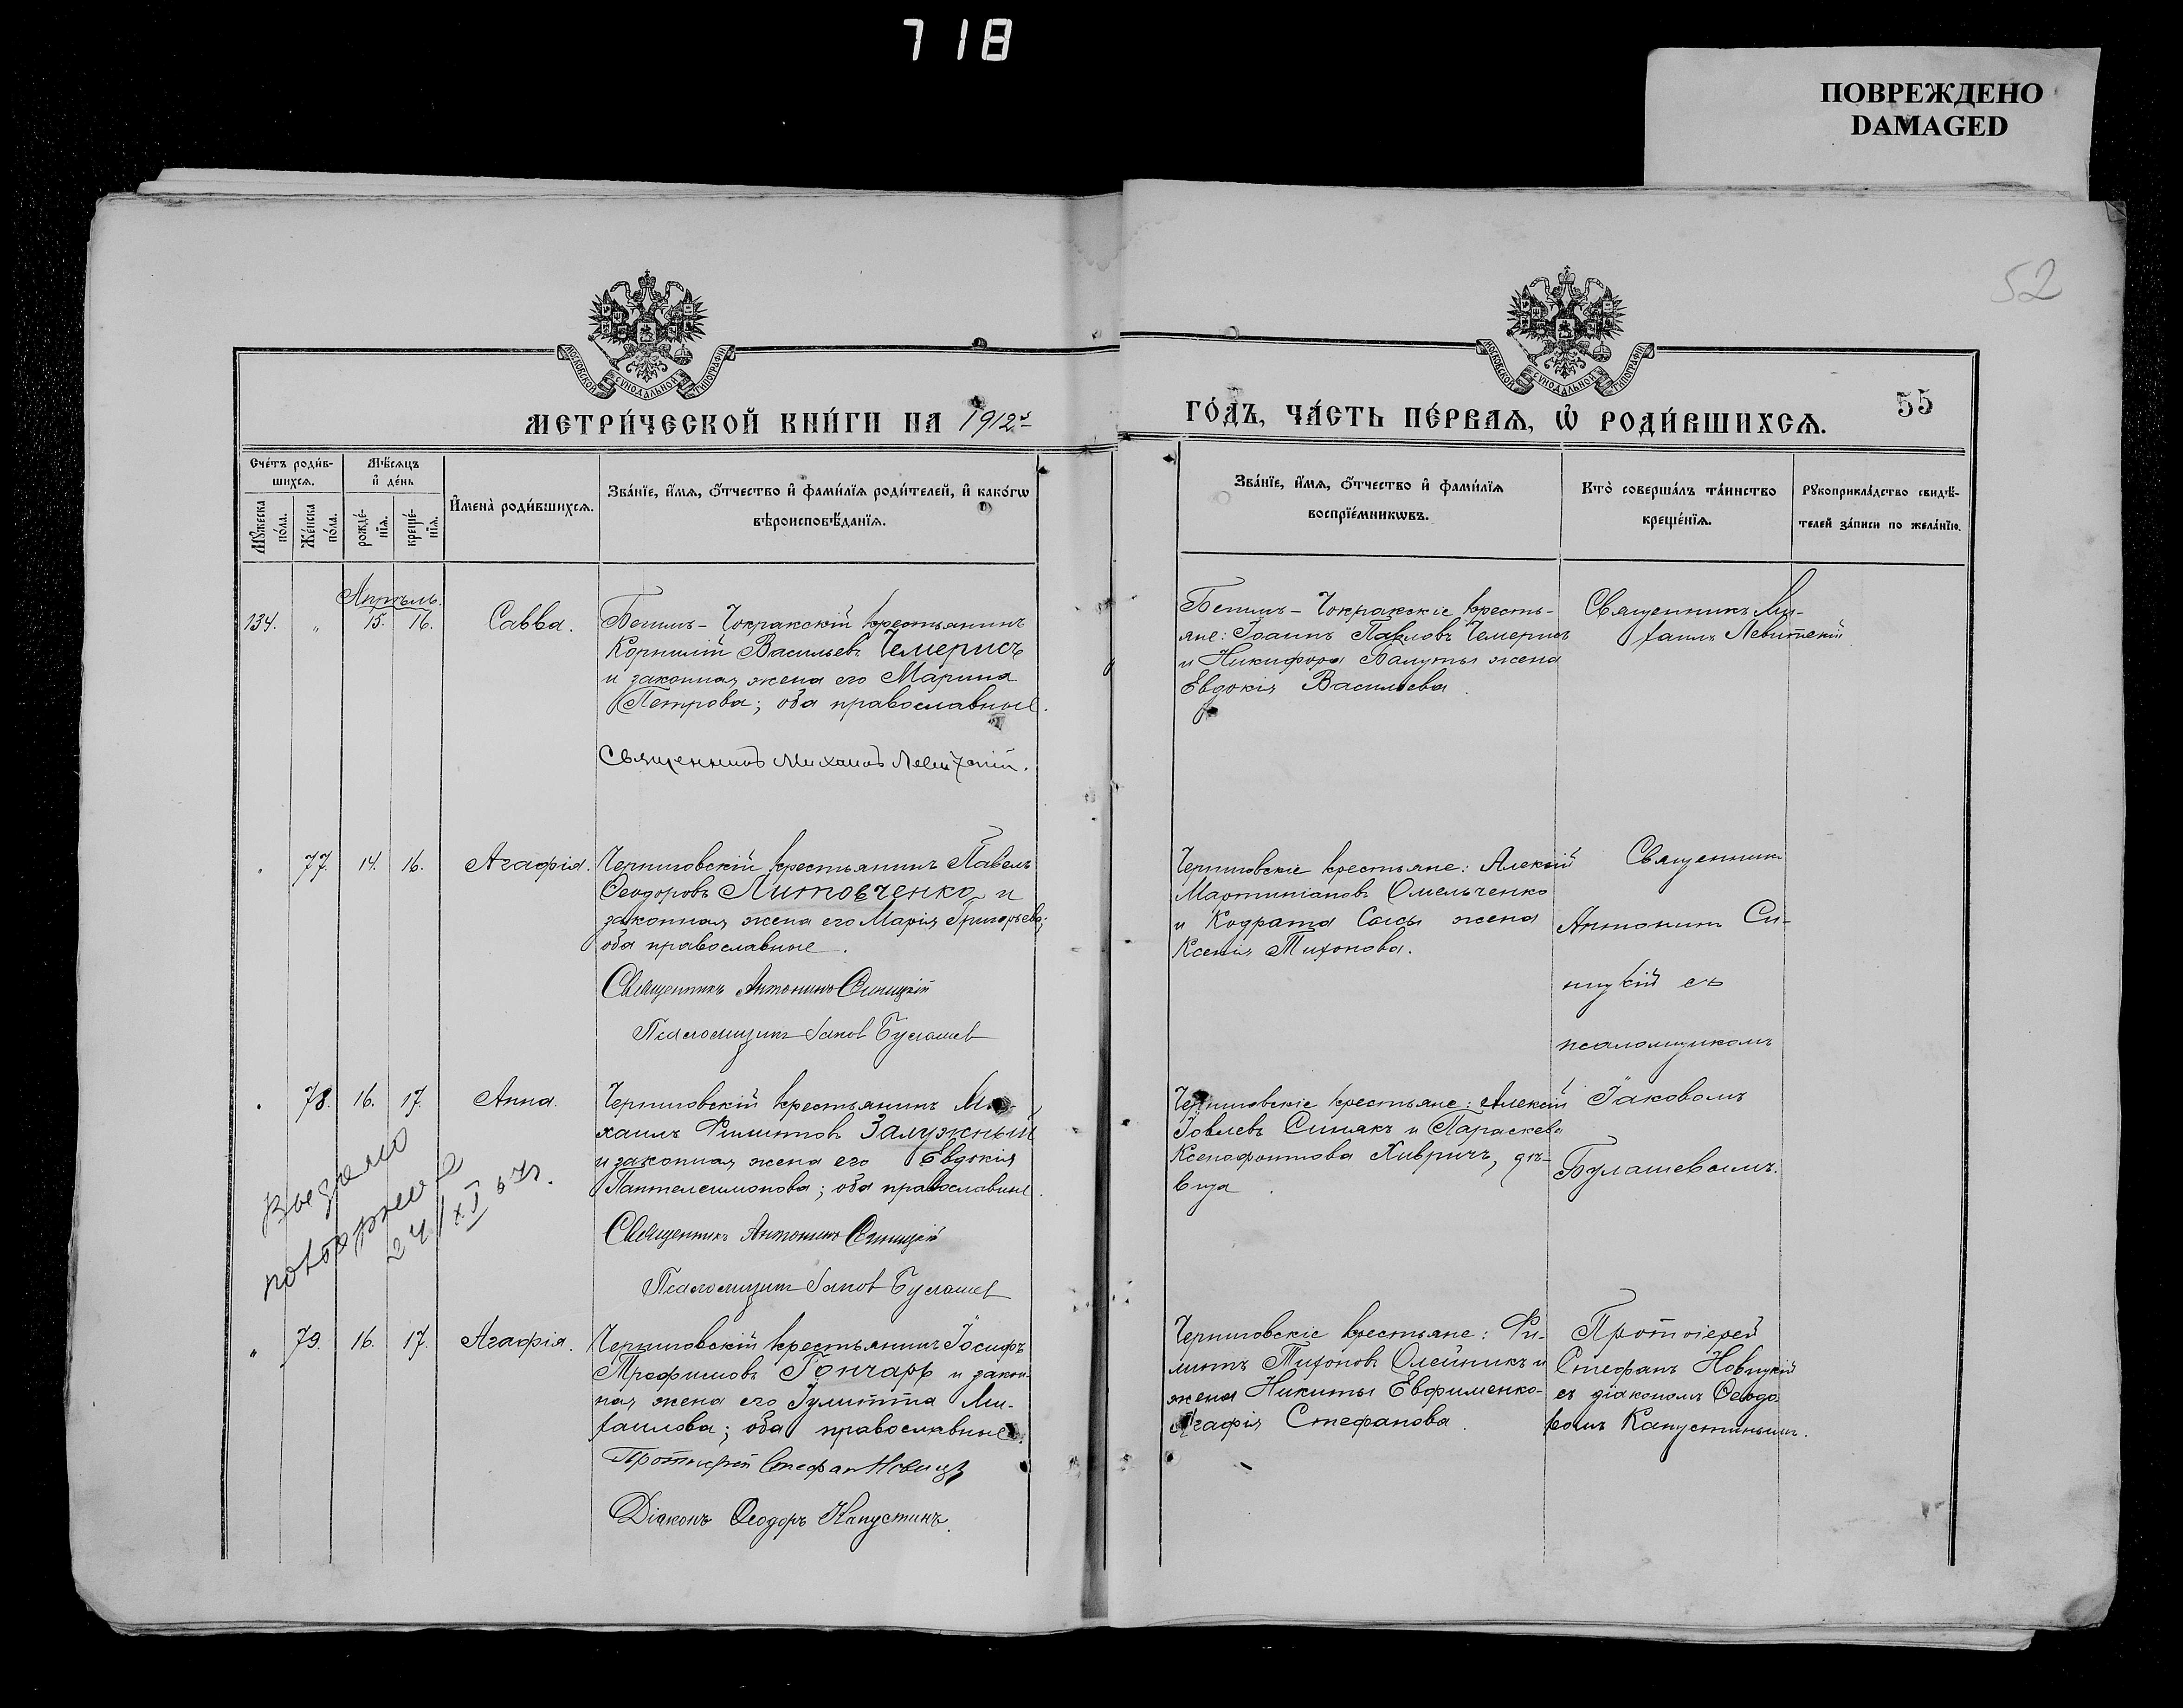 718
ПОВРЕЖДЕНО
DAMAGED
52
МОСКОВСКОЙ СѴНОДАЛЬНОЙ ТИПОГРАФІИ
МОСКОВСКОЙ СѴНОДАЛЬНОЙ ТИПОГРАФІИ
МЕТРИ́ЧЕСКОЙ КНИ́ГИ НА 1912 г
ГО́ДЪ, ЧА́СТЬ ПЕ́РВАѦ, Ѡ҆ РОДИ́ВШИХСѦ.
55
Сче́тъ роди́в-
шихсѧ.
Мꙋ́жеска по́ла.
Же́нска по́ла.
Мѣ́сѧцъ
и҆ де́нь
рожде́-
нїѧ.
креще́-
нїѧ.
И҆мена̀ роди́вшихсѧ.
Зва́нїе, и҆́мѧ, ѻ҆́тчество и҆ фами́лїѧ роди́телей, и҆ како́гѡ
вѣроисповѣ́данїѧ.
Зва́нїе, и҆́мѧ, ѻ҆́тчество и҆ фами́лїѧ
воспрїе́мникѡвъ.
Кто̀ соверша́лъ та́инство
креще́нїѧ.
Рꙋкоприкла́дство свидѣ́-
телей за́писи по жела́нїю.
Апрѣль.
134. " 15. 16. Савва.
Бешшъ-Чокракскій крестьянинъ
Корнилій Васильевъ Чемерисъ
и законная жена его Марина
Петрова; оба православные.
Священникъ Михаилъ Левитскій.
Бешшъ-Чокракскіе кресть-
яне: Іоаннъ Павловъ Чемерисъ
и Никифора Балуты жена
Евдокія Васильева.
Священникъ Ми-
хаилъ Левитскій
77. 14. 16. Агафія.
Черниговскій крестьянинъ Павелъ
Ѳеодоровъ Литовченко и
законная жена его Марія Григорьева;
оба православные.
Священникъ Антонинъ Синицкій
Псаломщикъ Іаковъ Булашев
Черниговскіе крестьяне: Алексій
Мартиніановъ Омельченко
и Кодрата Сысы жена
Ксенія Тихонова.
Священникъ
Антонинъ Си-
ницкій съ
псаломщикомъ
Іаковомъ
Булашевымъ.
78. 16. 17. Анна.
Черниговскій крестьянинъ Ми-
хаилъ Филипповъ Залужный
и законная жена его Евдокія
Пантелеимонова; оба православные.
Священникъ Антонинъ Синицкій
Псаломщикъ Іаковъ Булашев
Черниговскіе крестьяне: Алексій
Іовлевъ Синякъ и Параскева
Ксенофонтова Хивричъ, дѣ-
вица.
выдано
повторное
24/XI 67г.
" 79. 16. 17. Агафія.
Черниговскій крестьянинъ Іосифъ
Трофимовъ Гончаръ и закон-
ная жена его Іулитта Ми-
хаилова; оба православные.
Протоіерей Стефанъ Новицк
Діаконъ Ѳеодоръ Капустинъ.
Черниговскіе крестьяне: Фи-
липпъ Тихоновъ Олейникъ и
жена Никиты Евфименко-
Агафія Стефанова.
Протоіерей
Стефанъ Новицкій
съ діакономъ Ѳеодо-
ромъ Капустинымъ.